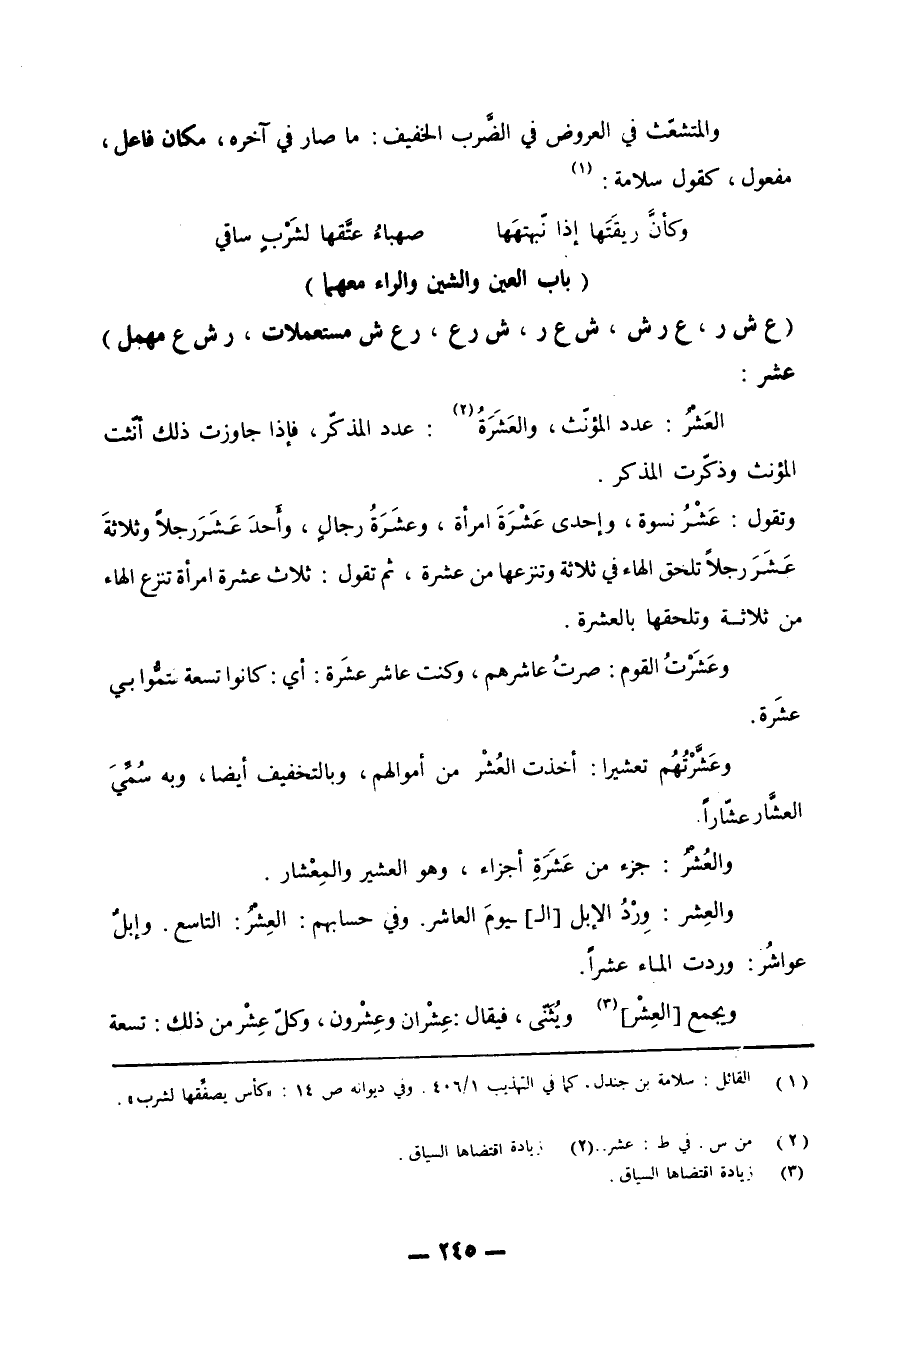 والمتشعّث في العروض في الضَّرب الخفيف : ما صار في آخره ، مكان فاعل ،
مفعول ، كقول سلامة : (١)
وكأنَّ ريقَتَها إذا نّبهتهَا صهباءُ عتَّقها لشرَْبٍ ساقي
( باب العين والشين والراء معهما )
( ع ش ر ، ع ر ش ، ش ع ر ، ش ر ع ، ر ع ش مستعملات ، ر ش ع مهمل )
عشر :
العَشرُْ : عدد المؤنّث ، والعَشَرَةُ (٢) : عدد المذكّر ، فإذا جاوزت ذلك أنّثت
المؤنث وذكّرت المذكر .
وتقول : عَشْرُ نسوة ، وإحدى عَشْرَةَ امرأة ، وعشَرَةُ رجالٍ ، وأَحدَ عَشَرَ رجلاً وثلاثةَ
عَشَرَ رجلاً تلحق الهاء في ثلاثة وتنزعها من عشرة ، ثم تقول : ثلاث عشرة امرأة تنزع الهاء
من ثلاثة وتلحقها بالعشرة .
وعَشَرْتُ القوم : صرتُ عاشرهم ، وكنت عاشر عشَرة : أي : كانوا تسعة فتمُّوا بي
عشَرة .
وعَشَّرْتُهُم تعشيرا : أخذت العُشْر من أموالهم ، وبالتخفيف أيضا ، وبه سُمِّيَ
العشَّار عشّاراً .
والعُشرُْ : جزء من عَشَرَةِ أجزاء ، وهو العشير والمِعْشار .
والعِشر : وِرْدُ الإبل [الـ] ـيومَ العاشر . وفي حسابهم : العِشرُْ : التاسع . وإبلٌ
عواشرُ : وردت الماء عشراً .
ويجمع [العِشْر] (٣) ويُثَنّى ، فيقال : عِشْران وعِشْرون ، وكلّ عِشْر من ذلك : تسعة
(١) القائل : سلامة بن جندل . كما في التهذيب ٤٠٦/١ . وفي ديوانه ص ١٤ : «كأس يصفِّقها لشرب» .
(٢) من س . في ط : عشر..(٢) زيادة اقتضاها السياق .
(٣) زيادة اقتضاها السياق .
— ٢٤٥ —